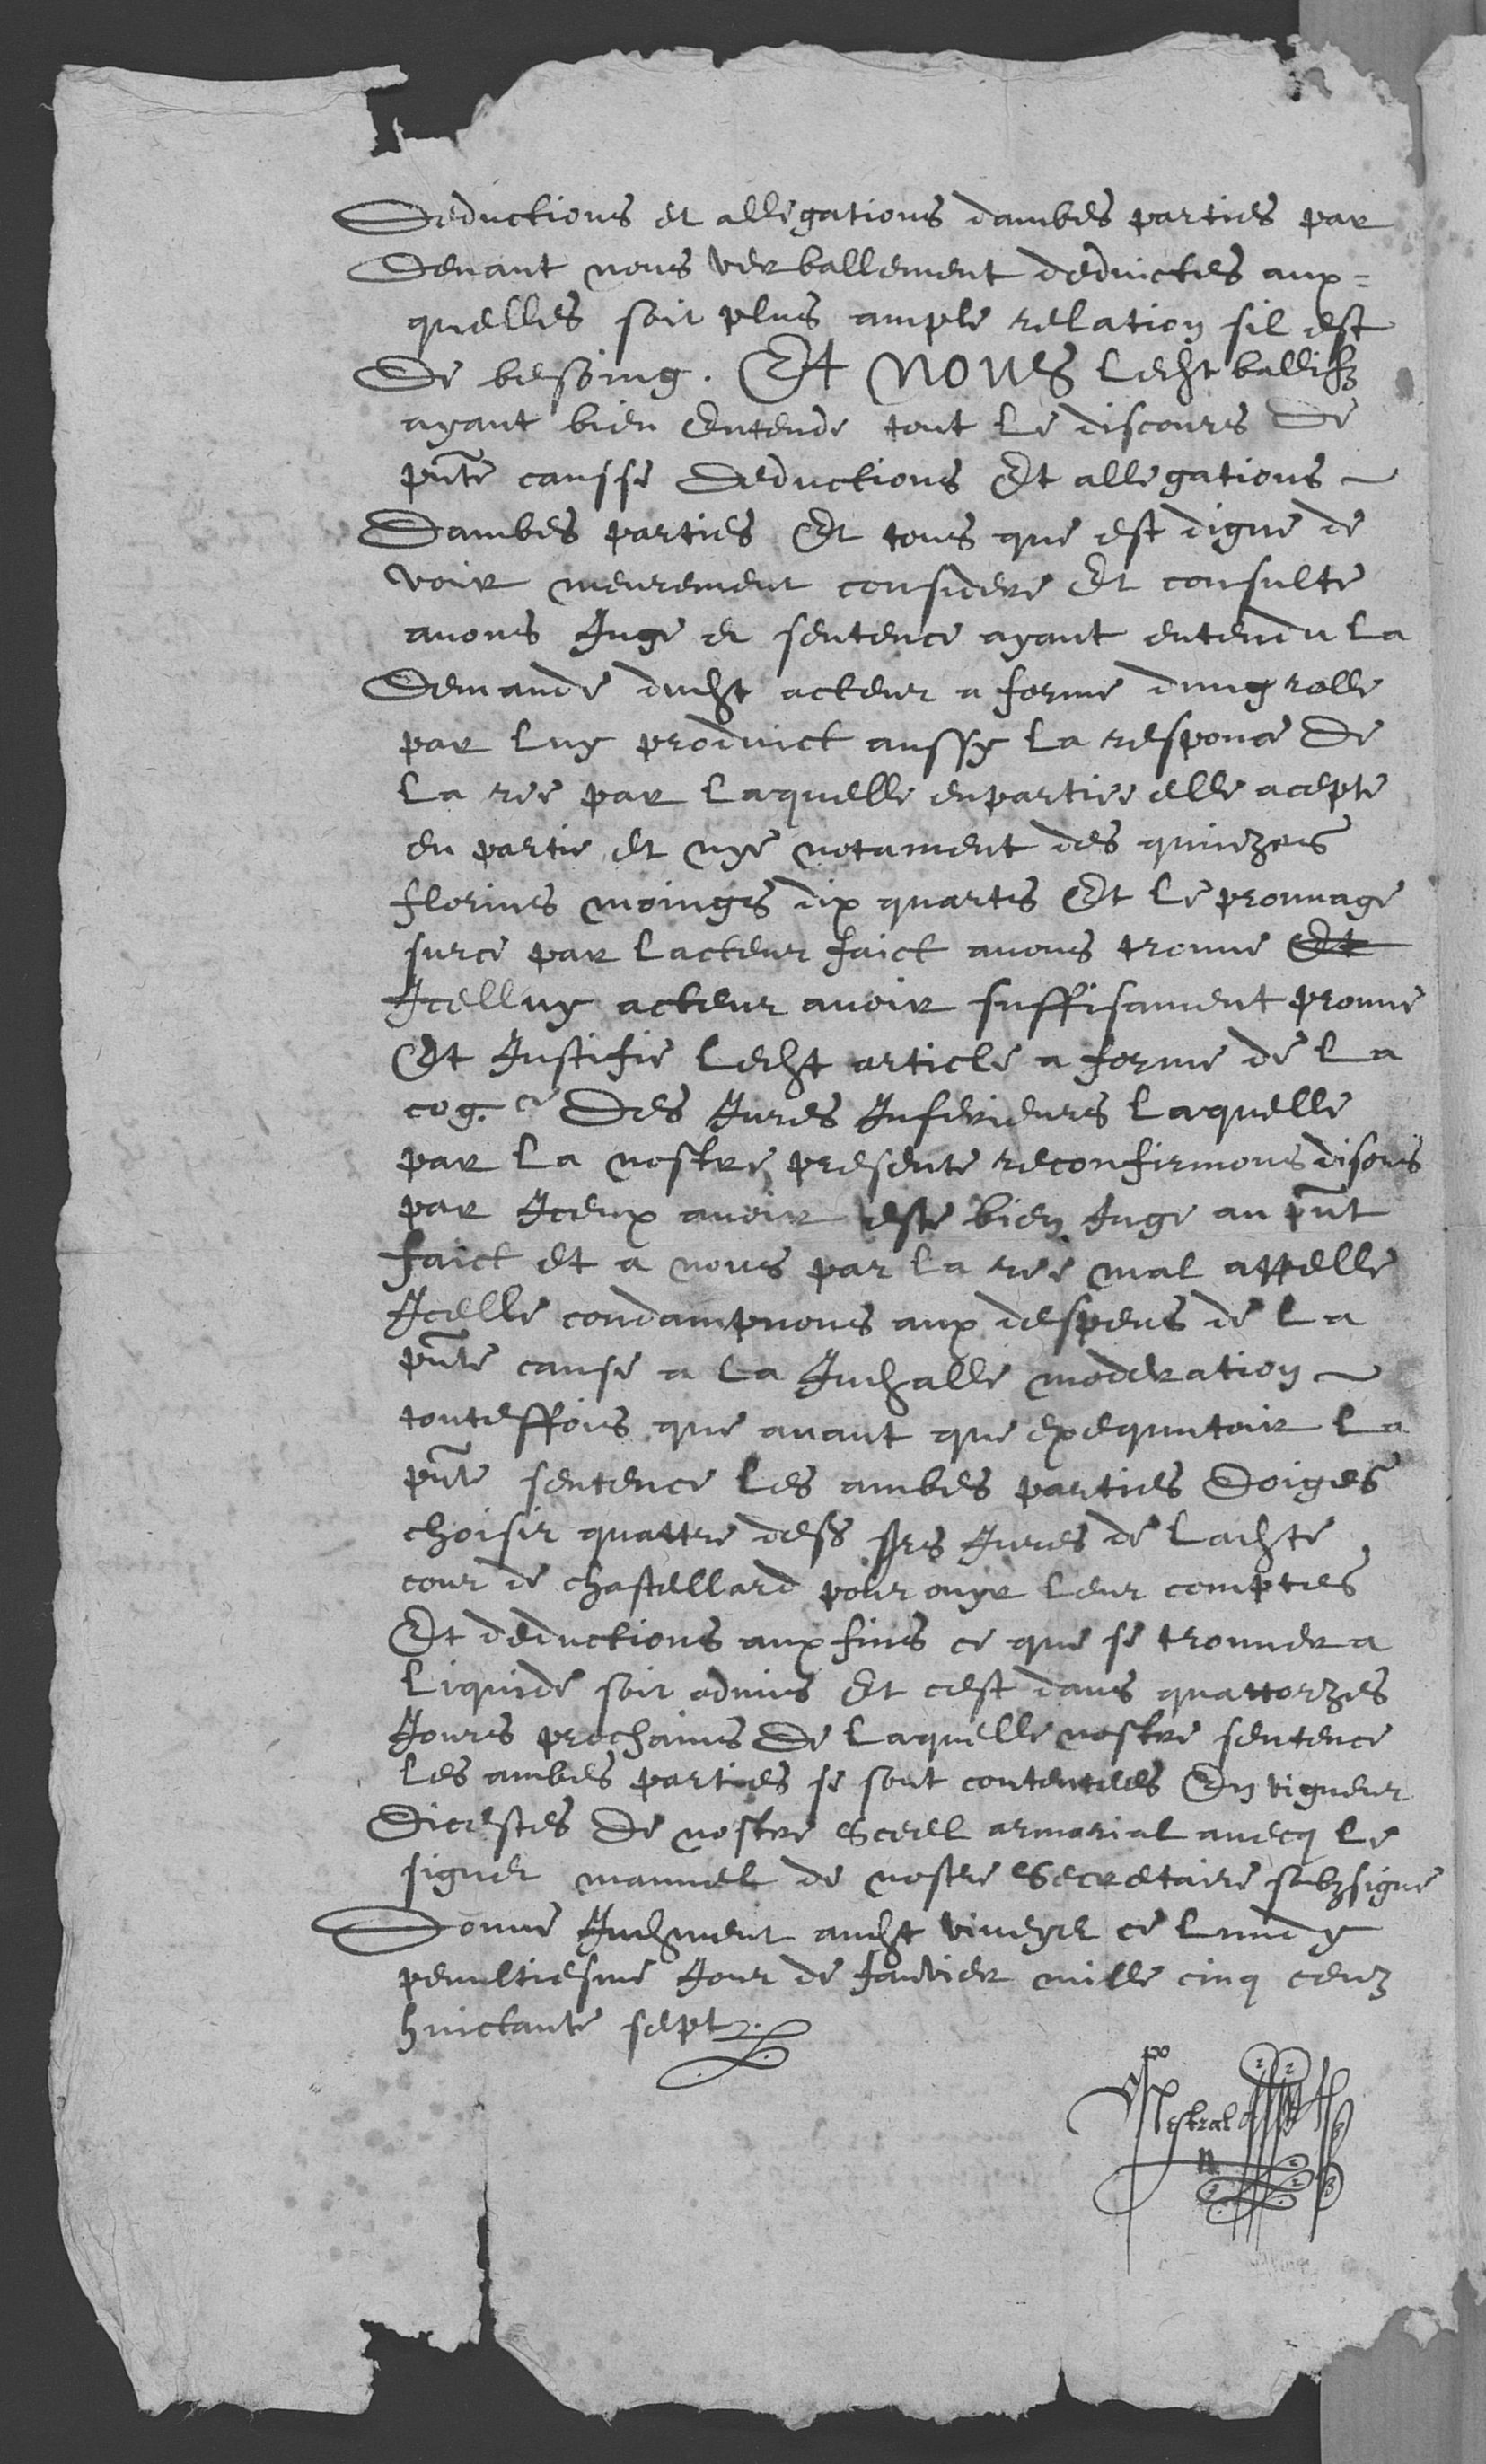 Deductions et allegations dambes parties par
devant nous verballement deduictes aux=
quelles soit plus ample relation sil est
de besoing. Et nous ledt ballifz
ayant bien entende tout le discours de
pnte causse deductions et allegations
dambes parties et tous que est digne de
voir meurement considere et consulte
avons Juge et sentence ayant entendu la
demande dudt acteur a forme dung rolle
par luy produict aussy la responce de
la ree par laquelle enpartiee elle acepte
en partie et nye notament des quinzes
florins moinges dix quarts et le prouvage
surce par lacteur faict avons trouve
Jcelluy acteur avoir suffisament prouve
et Justifie ledt article a forme de la
cog.ce des Jures Inferieurs laquelle
par la nostre presente reconfirmons disons
par Jceux avoir este bien Juge au pnt
faict et a nous par la ree mal appelle
Jcelle condampnons aux despens de la
pnte cause a la Judialle moderation
touteffois que avant que exequutoir la
pnte sentence les ambes parties doiges
choisir quattre dess srs Jures de ladte
cour de chastellard pour ouyr leur comptes
et deductions aux fins ce que se trouvera
liquide soit admis et cest dans quattorzes
Jours prochains de laquelle nostre sentence
les ambes parties se sont contentees en vigueur
dicestes de nostre sceel armorial avecq le
signet manuel de nostre secretaire subzsigne
Donne Judment audt viveyx ce lundy
penultiesme Jour de Janvier mille cinq cenz
huictante sept.
Mestral